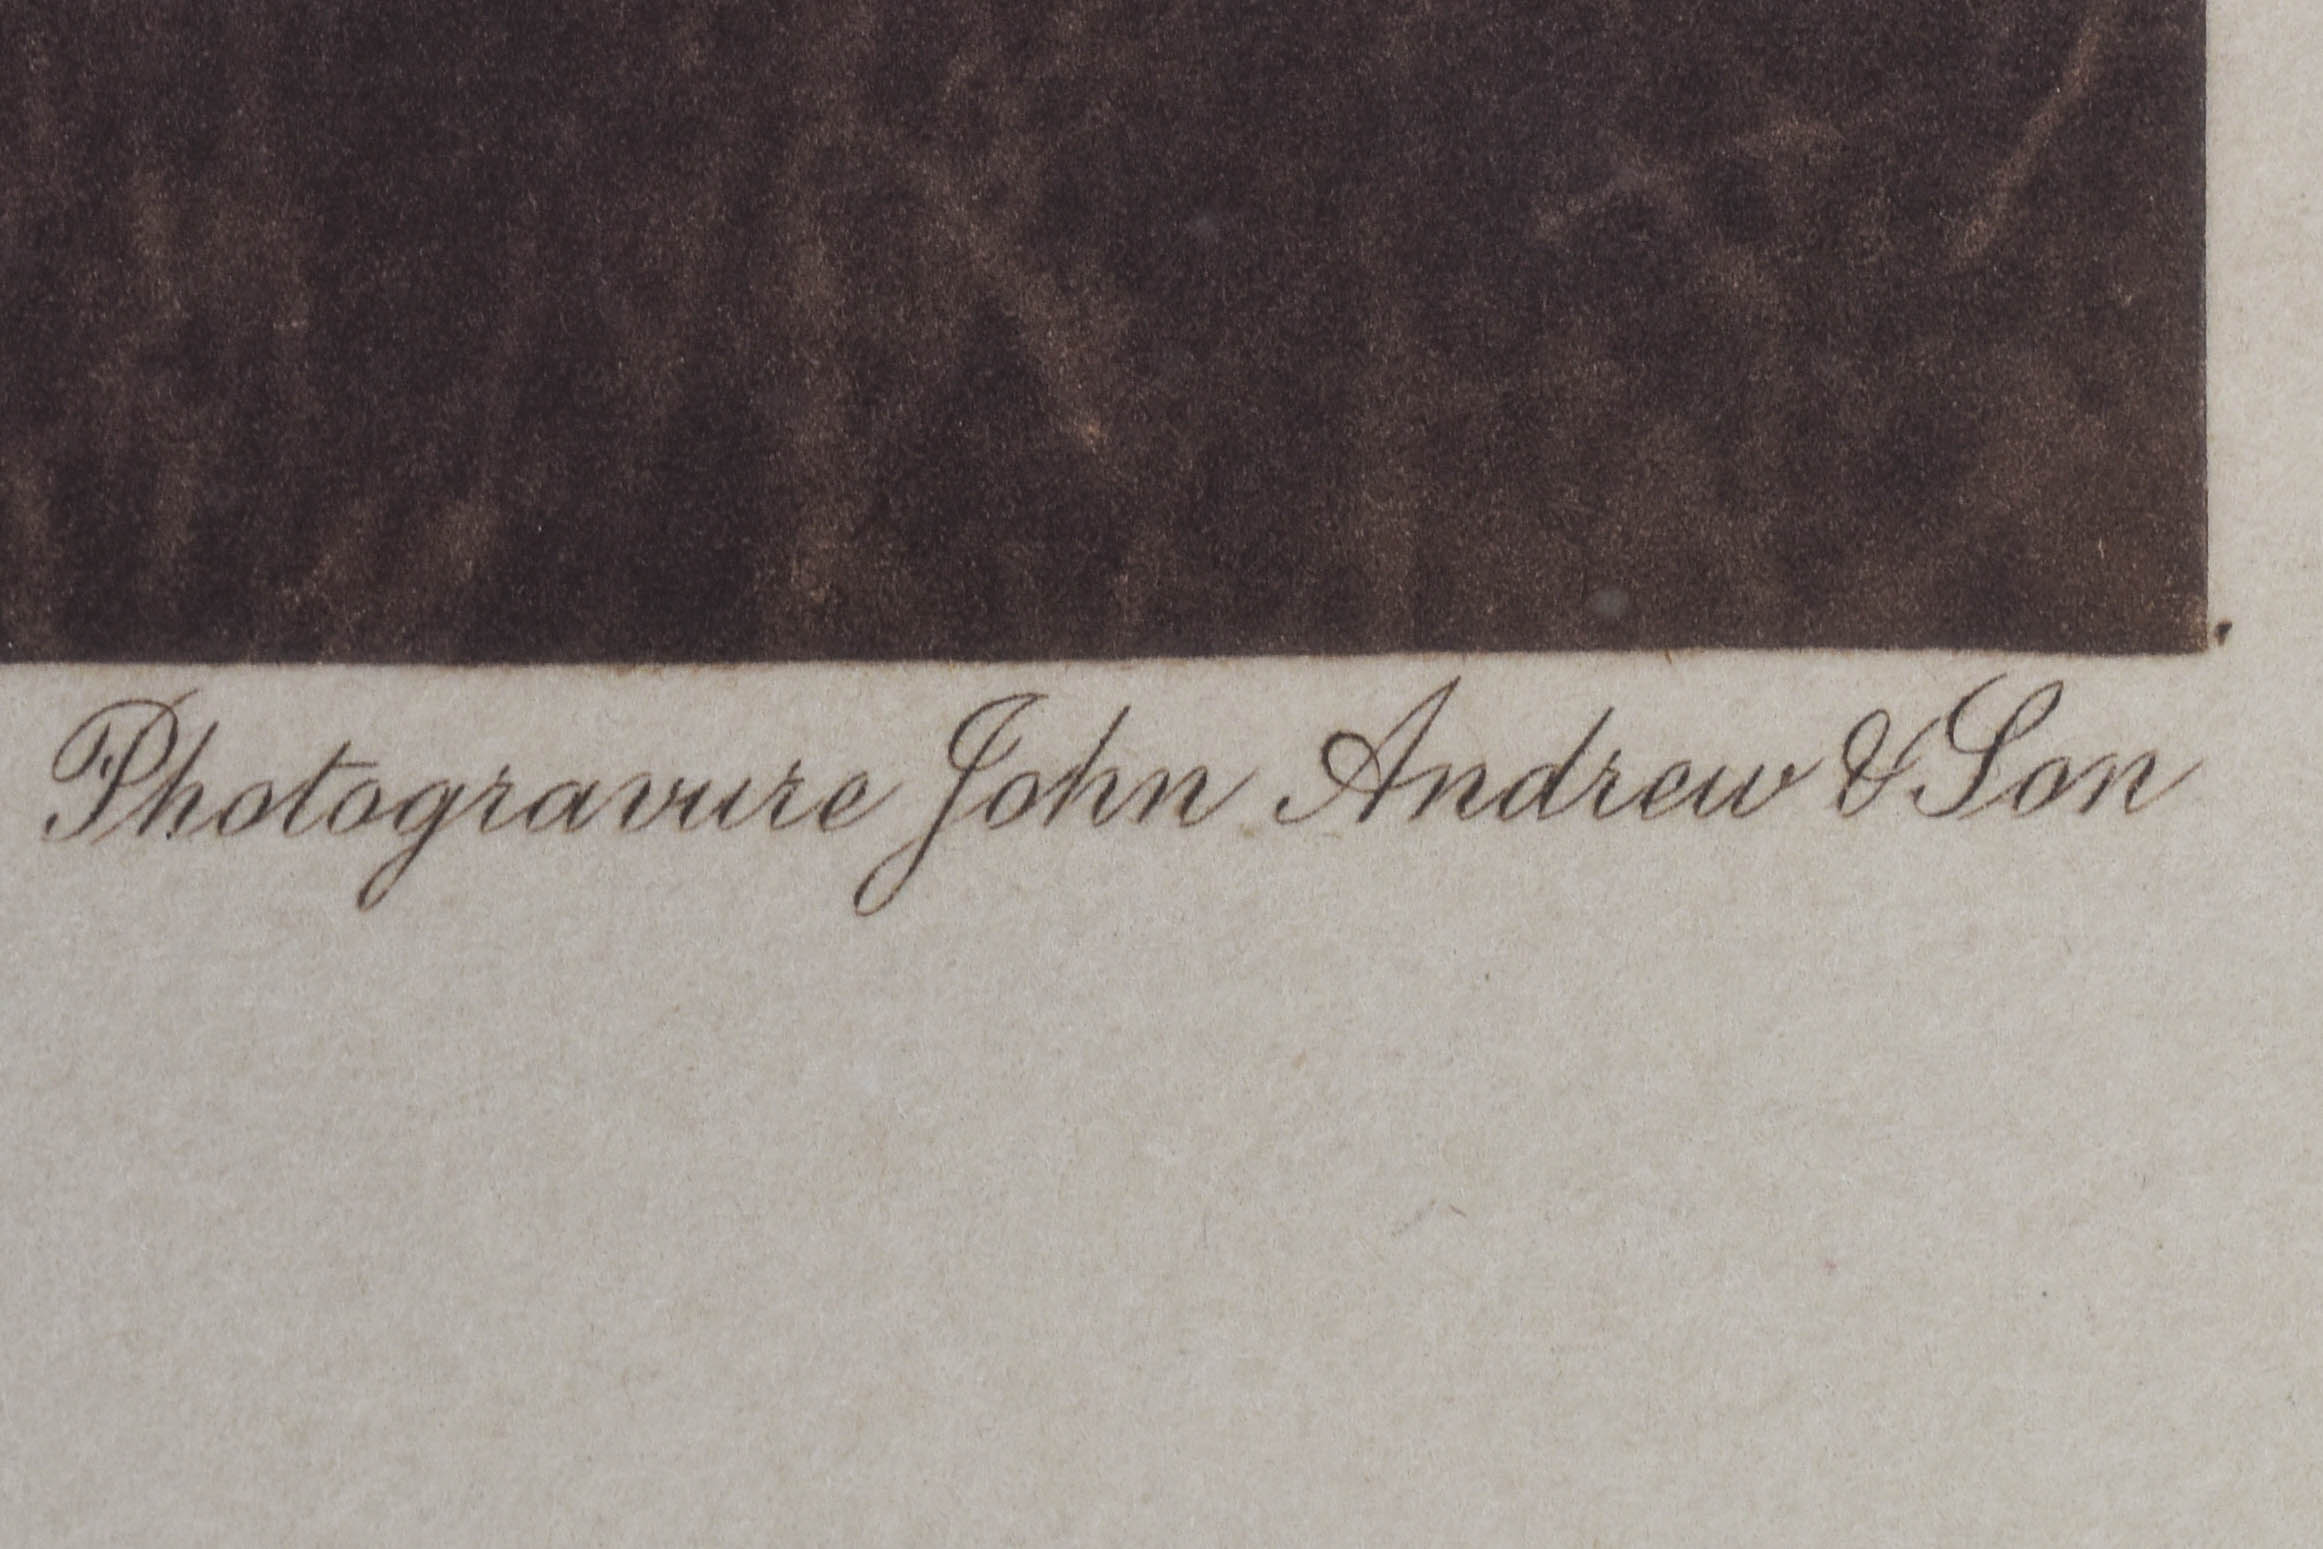 Photogravure John Andrew & Son